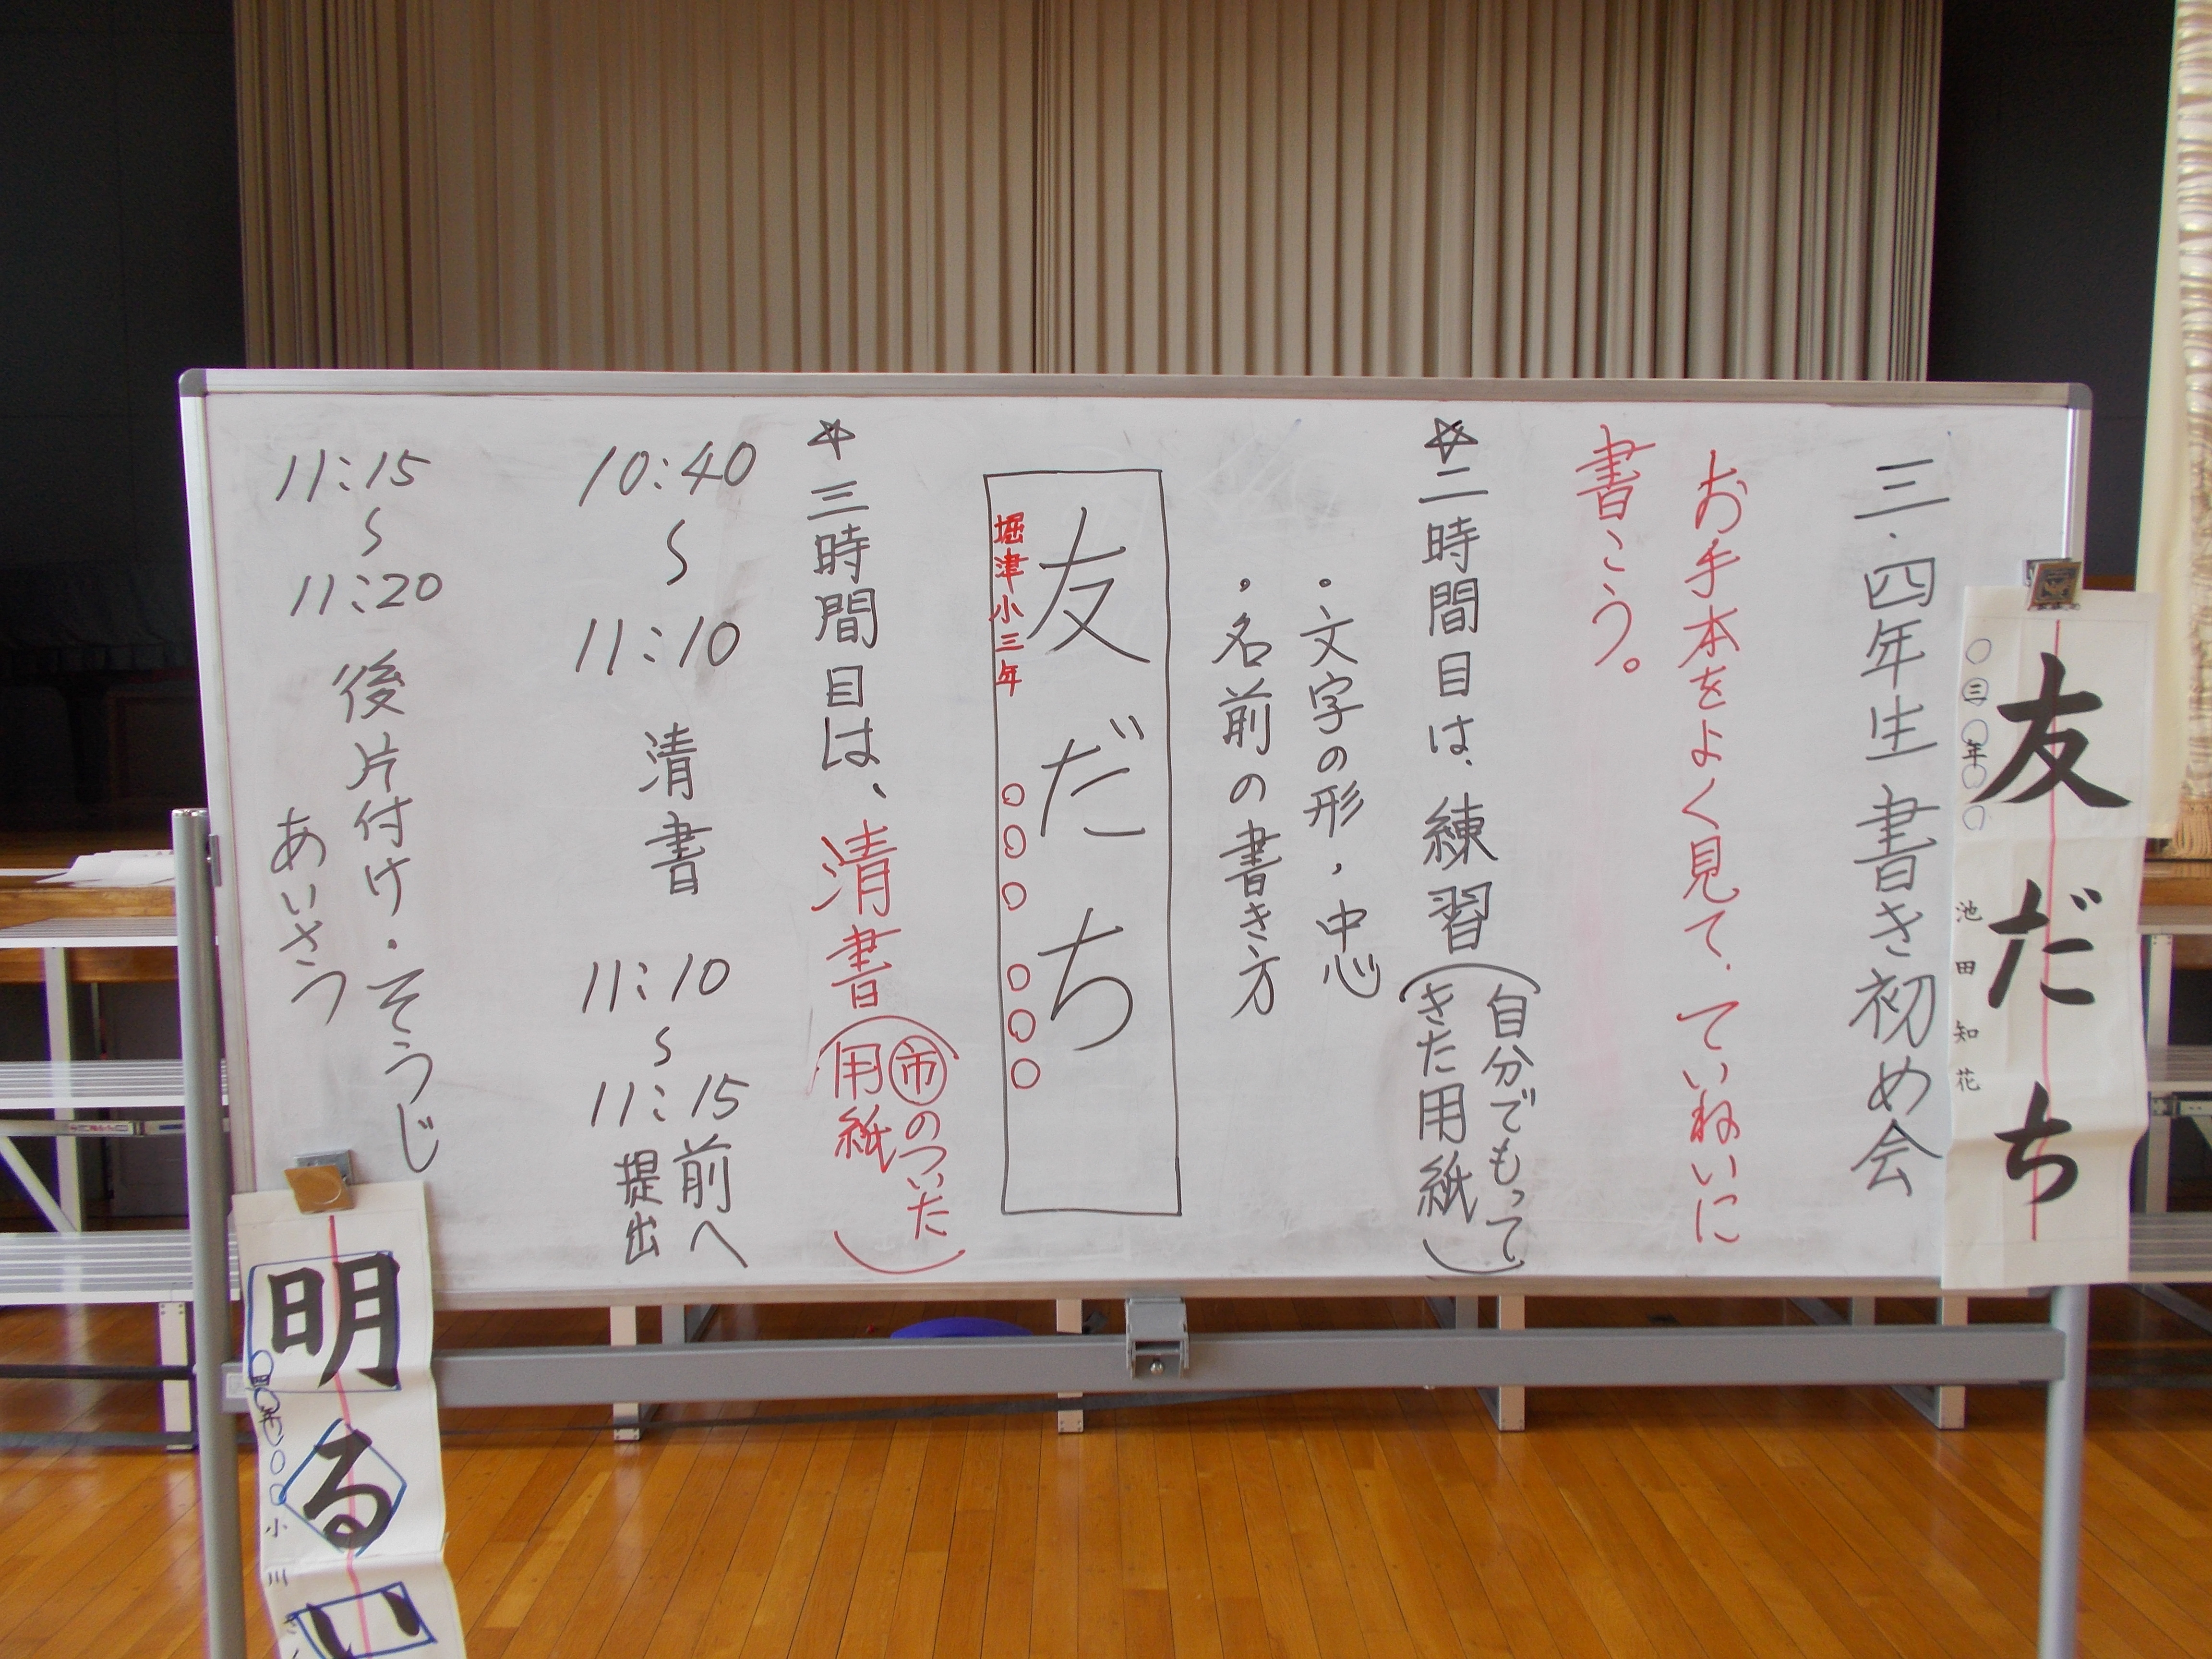 三・四年生書き初め会
お手本をよく見て、ていねいに
書こう。
☆二時間目は、練習(自分でもって
きた用紙)
・文字の形、中心
・名前の書き方
友だち
堀津小三年 〇〇〇 〇〇〇
☆三時間目は、清書(㊞のついた
用紙)
10:40
〜
11:10
清書
11:10
〜
11:15
前へ
提出
11:15
〜
11:20
後片付け・そうじ
あいさつ
友だち
三年
池田知花
明るい
小川